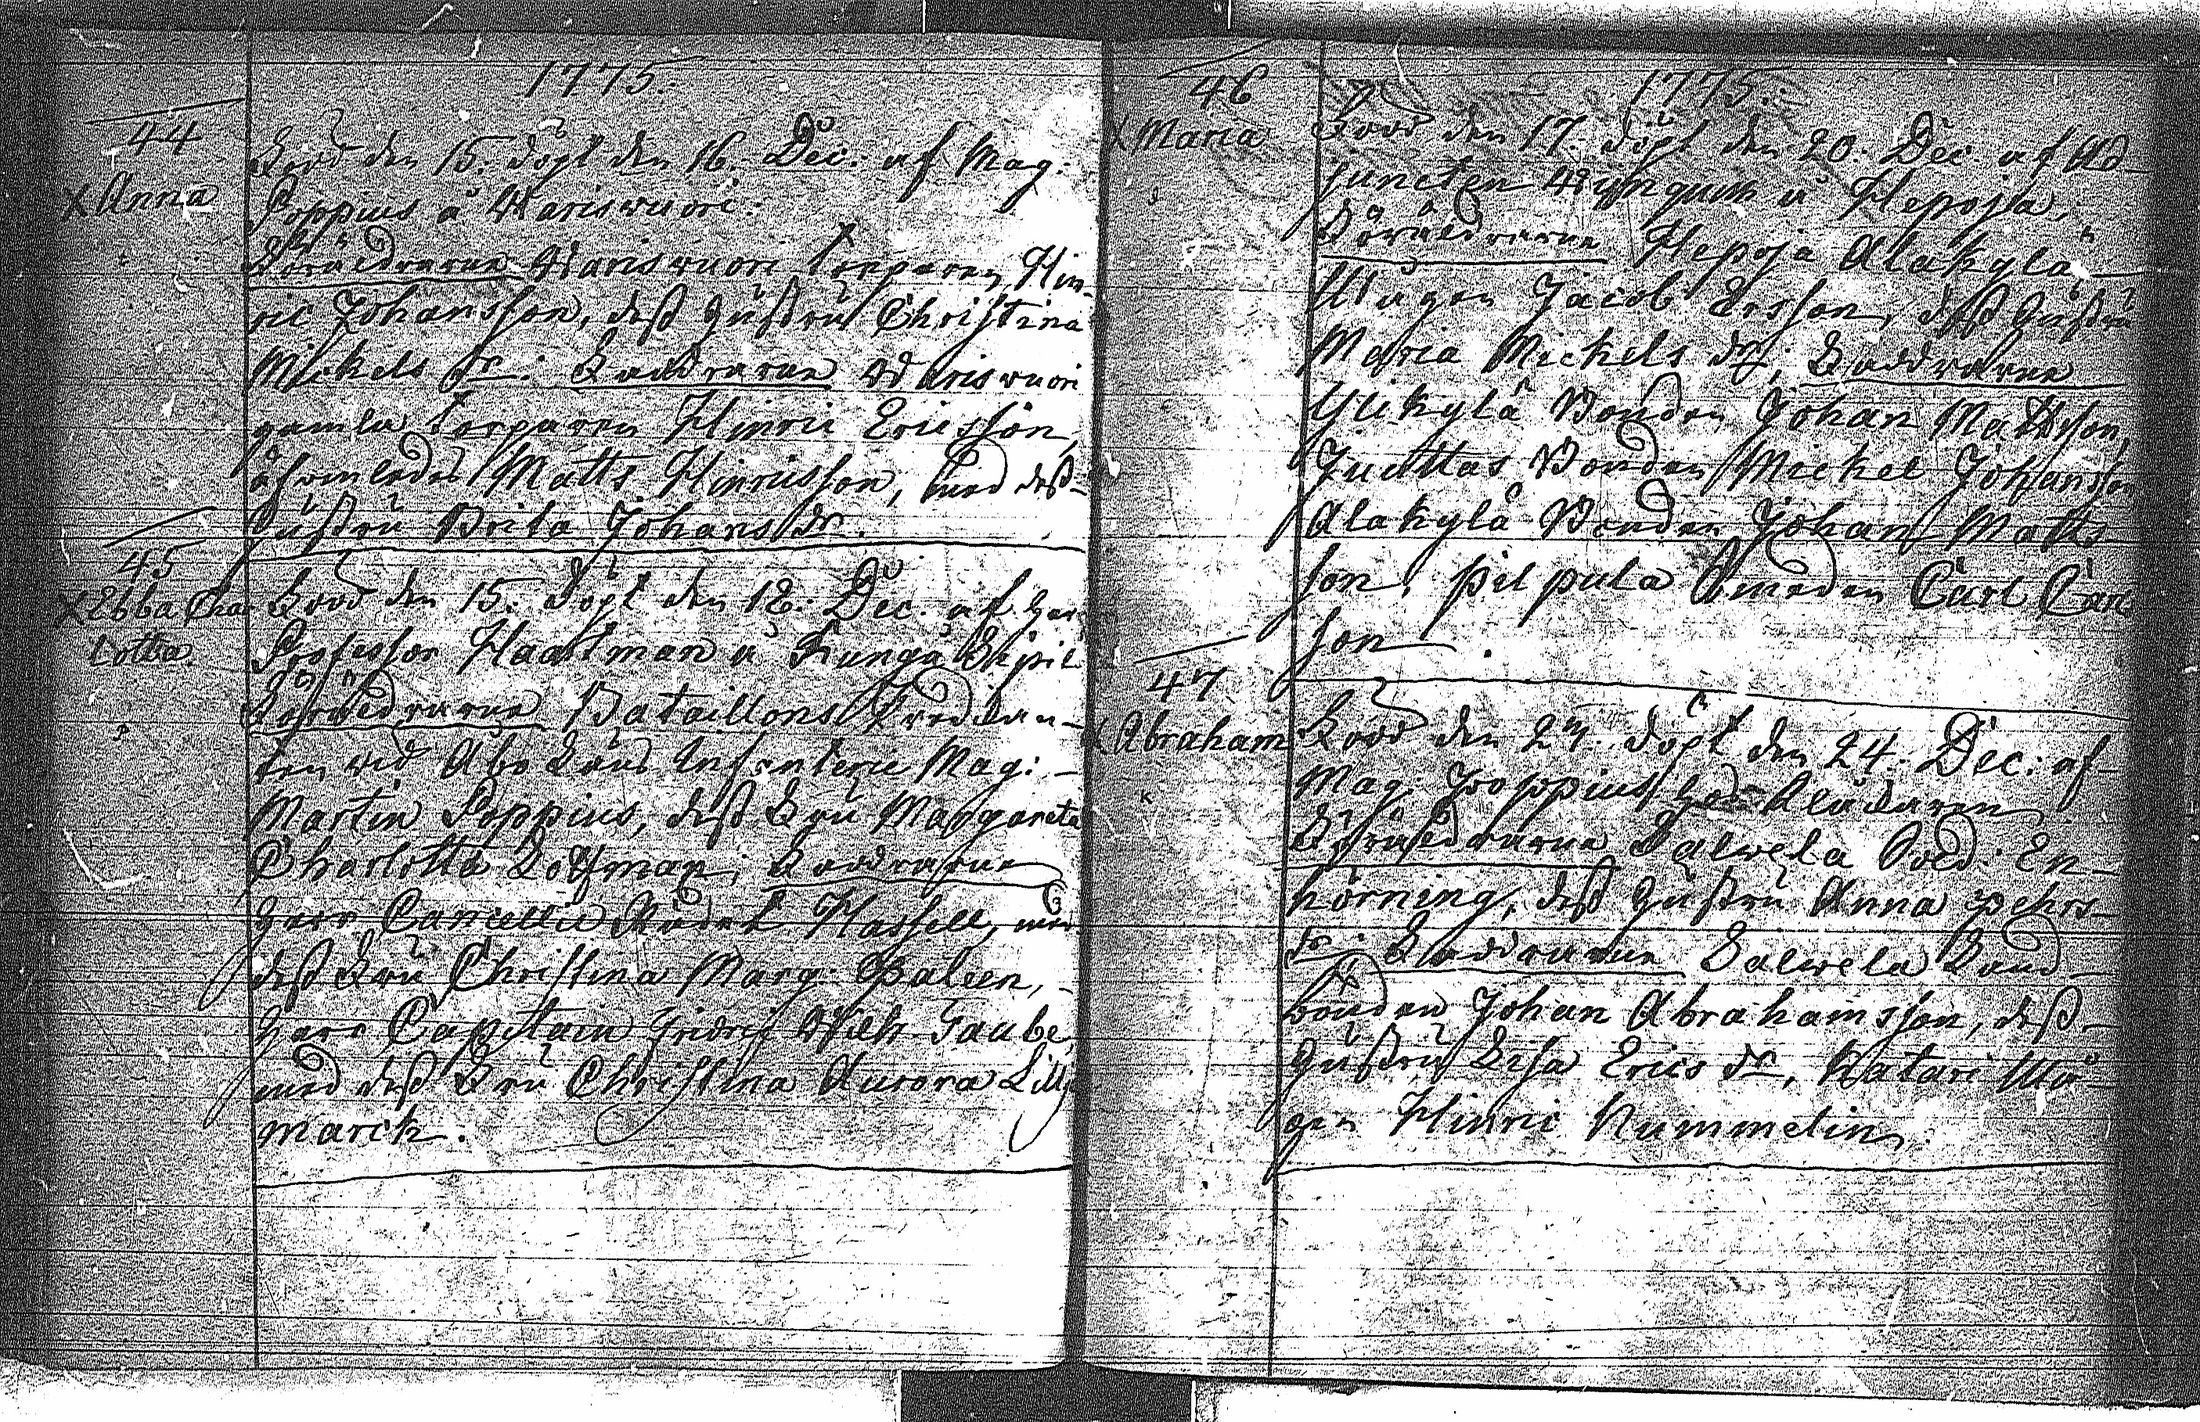 1775.
44
Född den 15. döpt den 16. Dec. af Mag:
X Anna
Poppius å Warisvuori.
Föräldrarne Warisvuori Torparen Hin-
ric Johansson, dess hustru Christina
Mickels dr. Faddrarne Warisvuori
gamla torparen Hinric Ericsson,
Matts Hinricsson, med dess
hustru Brita Johans dr.
45
X Ebba Char
lotta.
Född den 15. döpt den 18. Dec. af Herr
Professor Haartman å Kunga
Föräldrarne Bataillons Predikan-
ten wid Åbo Läns Infanterie Mag:
Martin Poppius, dess Fru Margareta
Charlotta Faddrarne
Herr Cancellie Rådet Hassell, med
dess Fru Christina Marg: Paleen,
Herr Capitain Fridric Wilh Taube,
med dess Fru Christina Aurora Lill
marck.
1775.
46
X Maria
Född den 17. döpt den 20. Dec. af Ad
juncten å Hepoja,
Föräldrarne Hepoja Alakylä
Mågen Jacob Ersson, dess hustru
Maria Mickels dr, Faddrarne
Ylikylä Bonden Johan Mattsson,
Juottas Bonden Mickel Johansson
Alakylä Bonden Johan Matts
son, Pilpula Smeden Carl Carl
son.
47
X Abraham
Född den 23. döpt den 24. Dec: af
Mag. Poppius hos
Föräldrarne Salwela Sold: En-
hörning, dess hustru Anna Pehrs
dr. Faddrarne Salwela Land
bonden Johan Abrahamsson, dess
hustru Lisa Erics dr, Katari Må-
gen Hinric Nummelin.